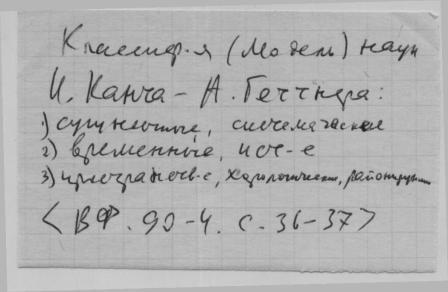 Классиф-я (модель) наук
И. Канта - А. Геттнера:
1) сущностные, систематические
2) временные, ист-е
3) пространств-е, хорологические, районирующие
<ВФ. 90-4. с. 36-37>